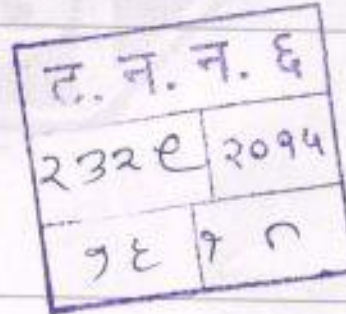 ट. न. न. ६
२३२९ २०१५
१६